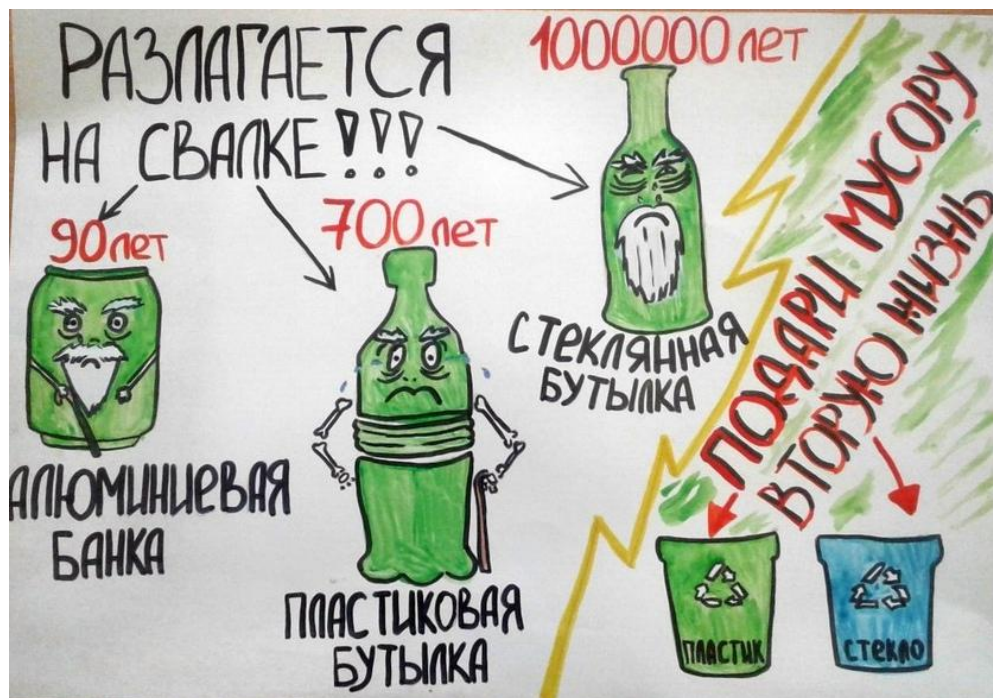 РАЗЛАГАЕТСЯ
НА СВАЛКЕ!!!
90 лет
АЛЮМИНИЕВАЯ
БАНКА
700 лет
ПЛАСТИКОВАЯ
БУТЫЛКА
1000000 лет
СТЕКЛЯННАЯ
БУТЫЛКА
ПОДАРИ МУСОРУ
ВТОРУЮ ЖИЗНЬ
ПЛАСТИК
СТЕКЛО